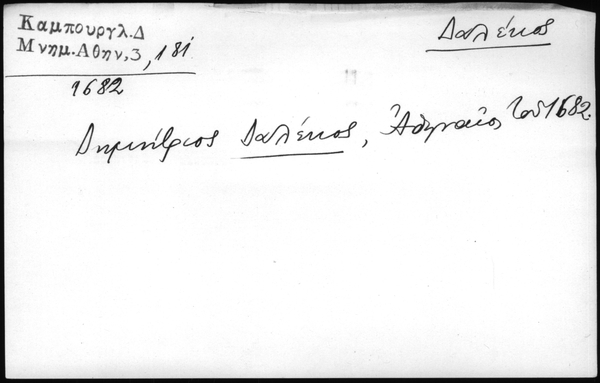 Καμπουργλ.Δ
Μνημ.Αθην,3, 181
1682
Δαλέκος
Δημήτριος Δαλέκος, Ἀθηναῖος τοῦ 1682.